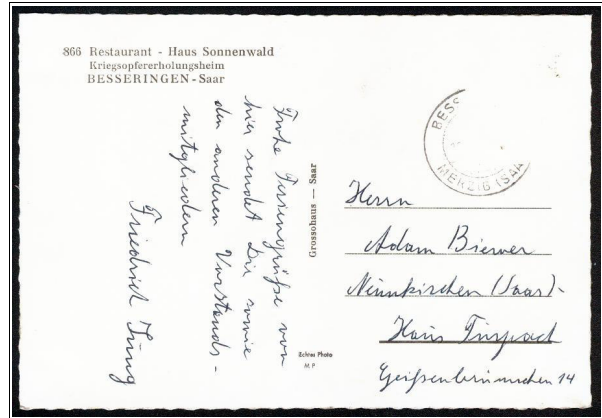 866 Restaurant - Haus Sonnenwald
Kriegsopfererholungsheim
BESSERINGEN - Saar
Frohe Feriengrüße von
hier sendet Dir sowie
den anderen Vorstands-
mitgliedern
Friedrich Jung
Grossohaus — Saar
Echtes Photo
M P
BESS
MERZIG (SAA
Herrn
Adam Bierwer
Neunkirchen (Saar)-
Haus
Geißenbrünnchen 14